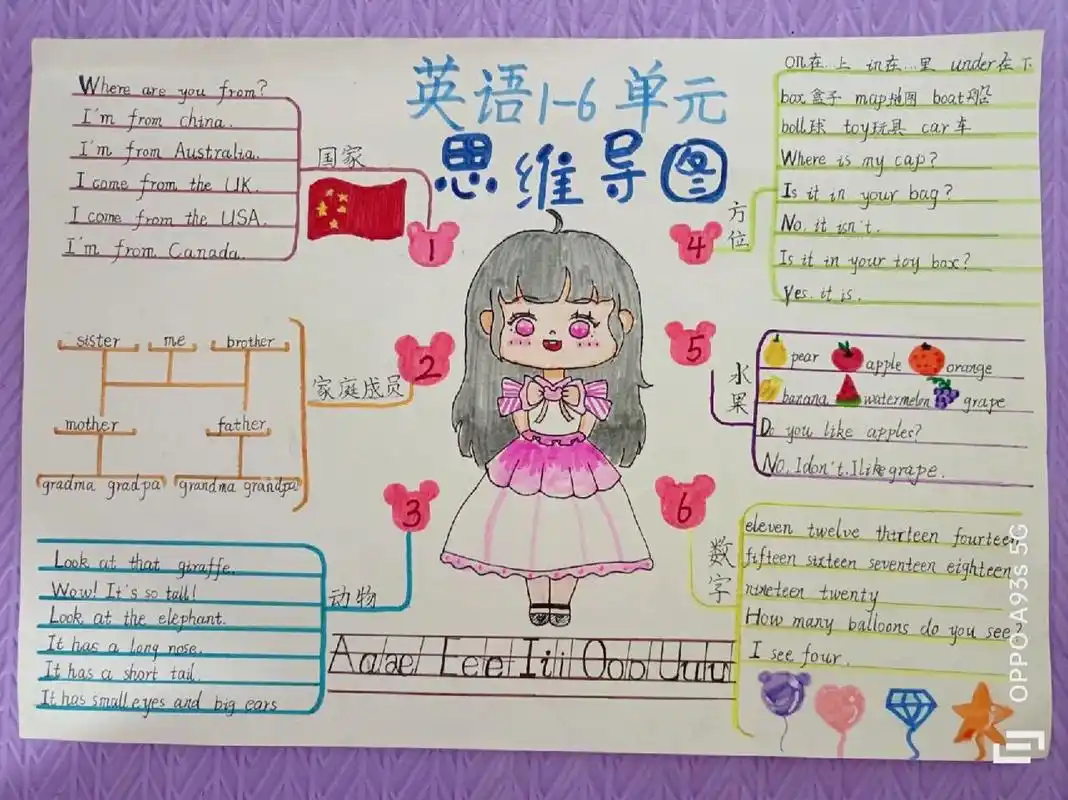 英语1-6单元
思维导图
1
国家
Where are you from?
I'm from china.
I'm from Australia.
I come from the UK.
I come from the USA.
I'm from Canada.
2
家庭成员
sister me brother
mother father
gradma gradpa grandma grandpa
3
动物
Look at that giraffe.
Wow! It's so tall!
Look at the elephant.
It has a long nose.
It has a short tail.
It has small eyes and big ears
4
方位
on在...上 in在...里 under在下
box盒子 map地图 boat船
boll球 toy玩具 car车
Where is my cap?
Is it in your bag?
No, it isn't.
Is it in your toy box?
Yes. it is.
5
水果
pear apple orange
banana watermelon grape
Do you like apples?
No, I don't. I like grape.
6
数字
eleven twelve thirteen fourteen
fifteen sixteen seventeen eighteen
nineteen twenty
How many balloons do you see?
I see four.
OPPO A93s 5G